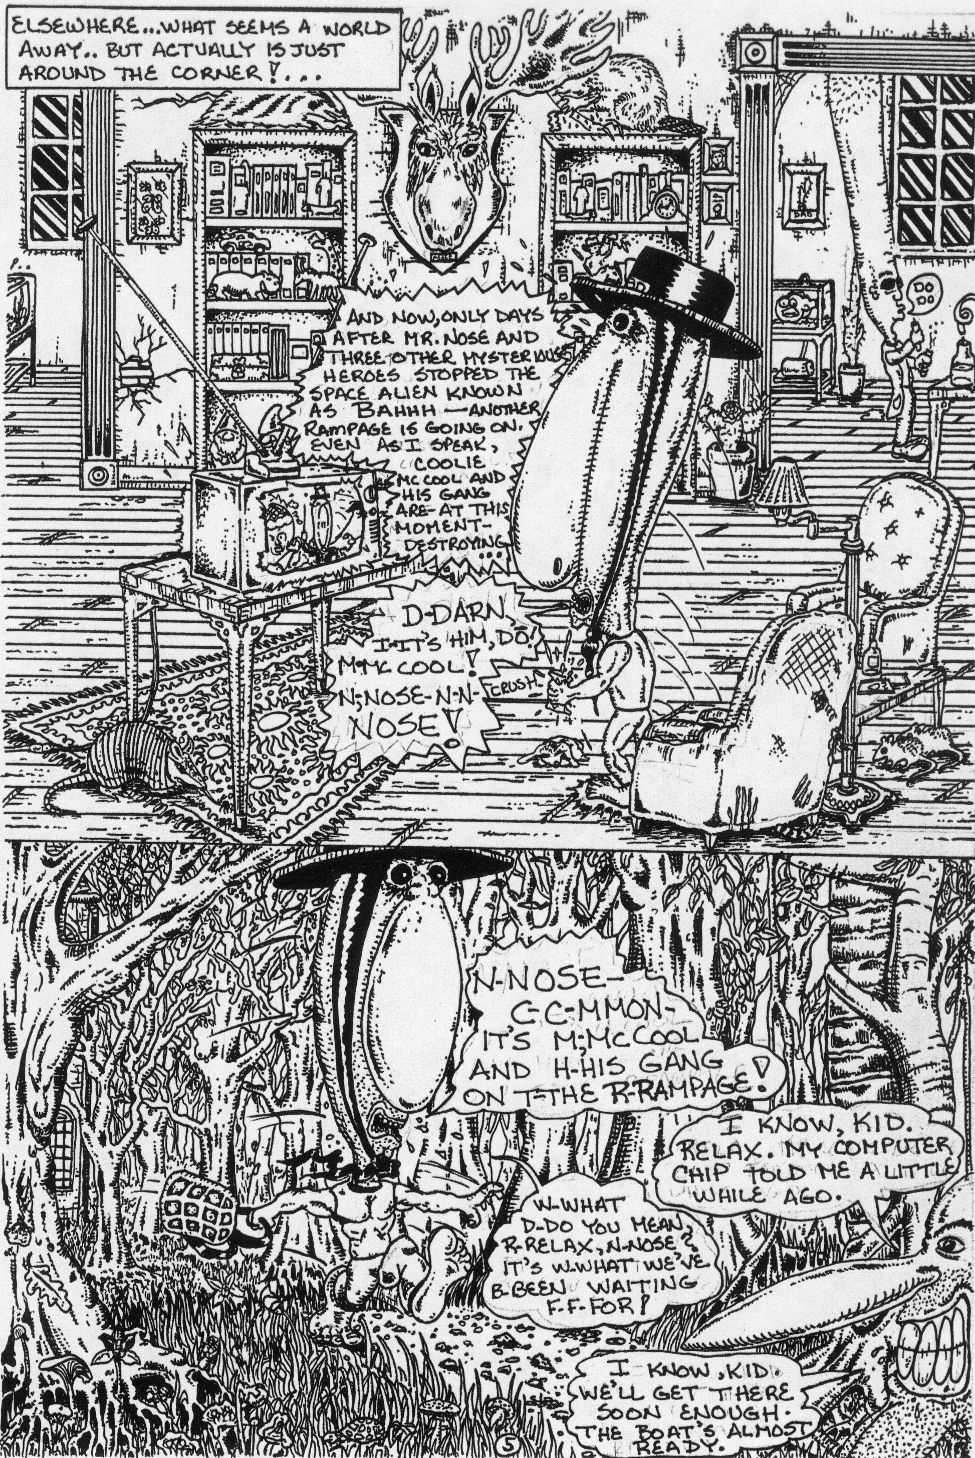 ELSEWHERE...WHAT SEEMS A WORLD
AWAY.. BUT ACTUALLY IS JUST
AROUND THE CORNER!...
DAD
DO
DO
AND NOW, ONLY DAYS
AFTER MR. NOSE AND
THREE OTHER MYSTERIOUS
HEROES STOPPED THE
SPACE ALIEN KNOWN
AS BAHHH — ANOTHER
RAMPAGE IS GOING ON.
EVEN AS I SPEAK,
COOLIE
MCCOOL AND
HIS GANG
ARE AT THIS
MOMENT-
DESTROYING
...
D-DARN
I-IT'S HIM, DO!
M-MCCOOL!
N;NOSE-N-N-
NOSE!
CRUSH!
N-NOSE-
C-C-MMON-
IT'S M;MCCOOL
AND H-HIS GANG
ON T-THE R-RAMPAGE!
I KNOW, KID.
RELAX. MY COMPUTER
CHIP TOLD ME A LITTLE
WHILE AGO.
W-WHAT
D-DO YOU MEAN,
R-RELAX, N-NOSE?
IT'S W-WHAT WE'VE
B-BEEN WAITING
F-F-FOR!
I KNOW, KID.
WE'LL GET THERE
SOON ENOUGH.
THE BOAT'S ALMOST
READY.
5